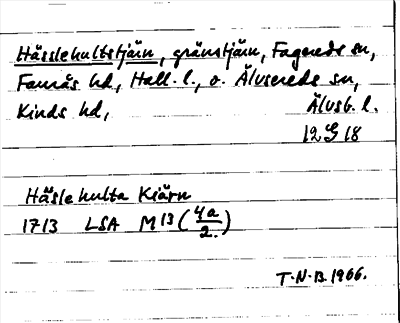 Hässlehultstjärn, gränstjärn, Fagereds sn,
Faurås hd, Hall. l., o. Älvsereds sn,
Kinds hd, Älvsb. l.
12 G 18
Häslehulta Kiärn
1713 LSA M 13 (4a/2.)
T.N.B. 1966.